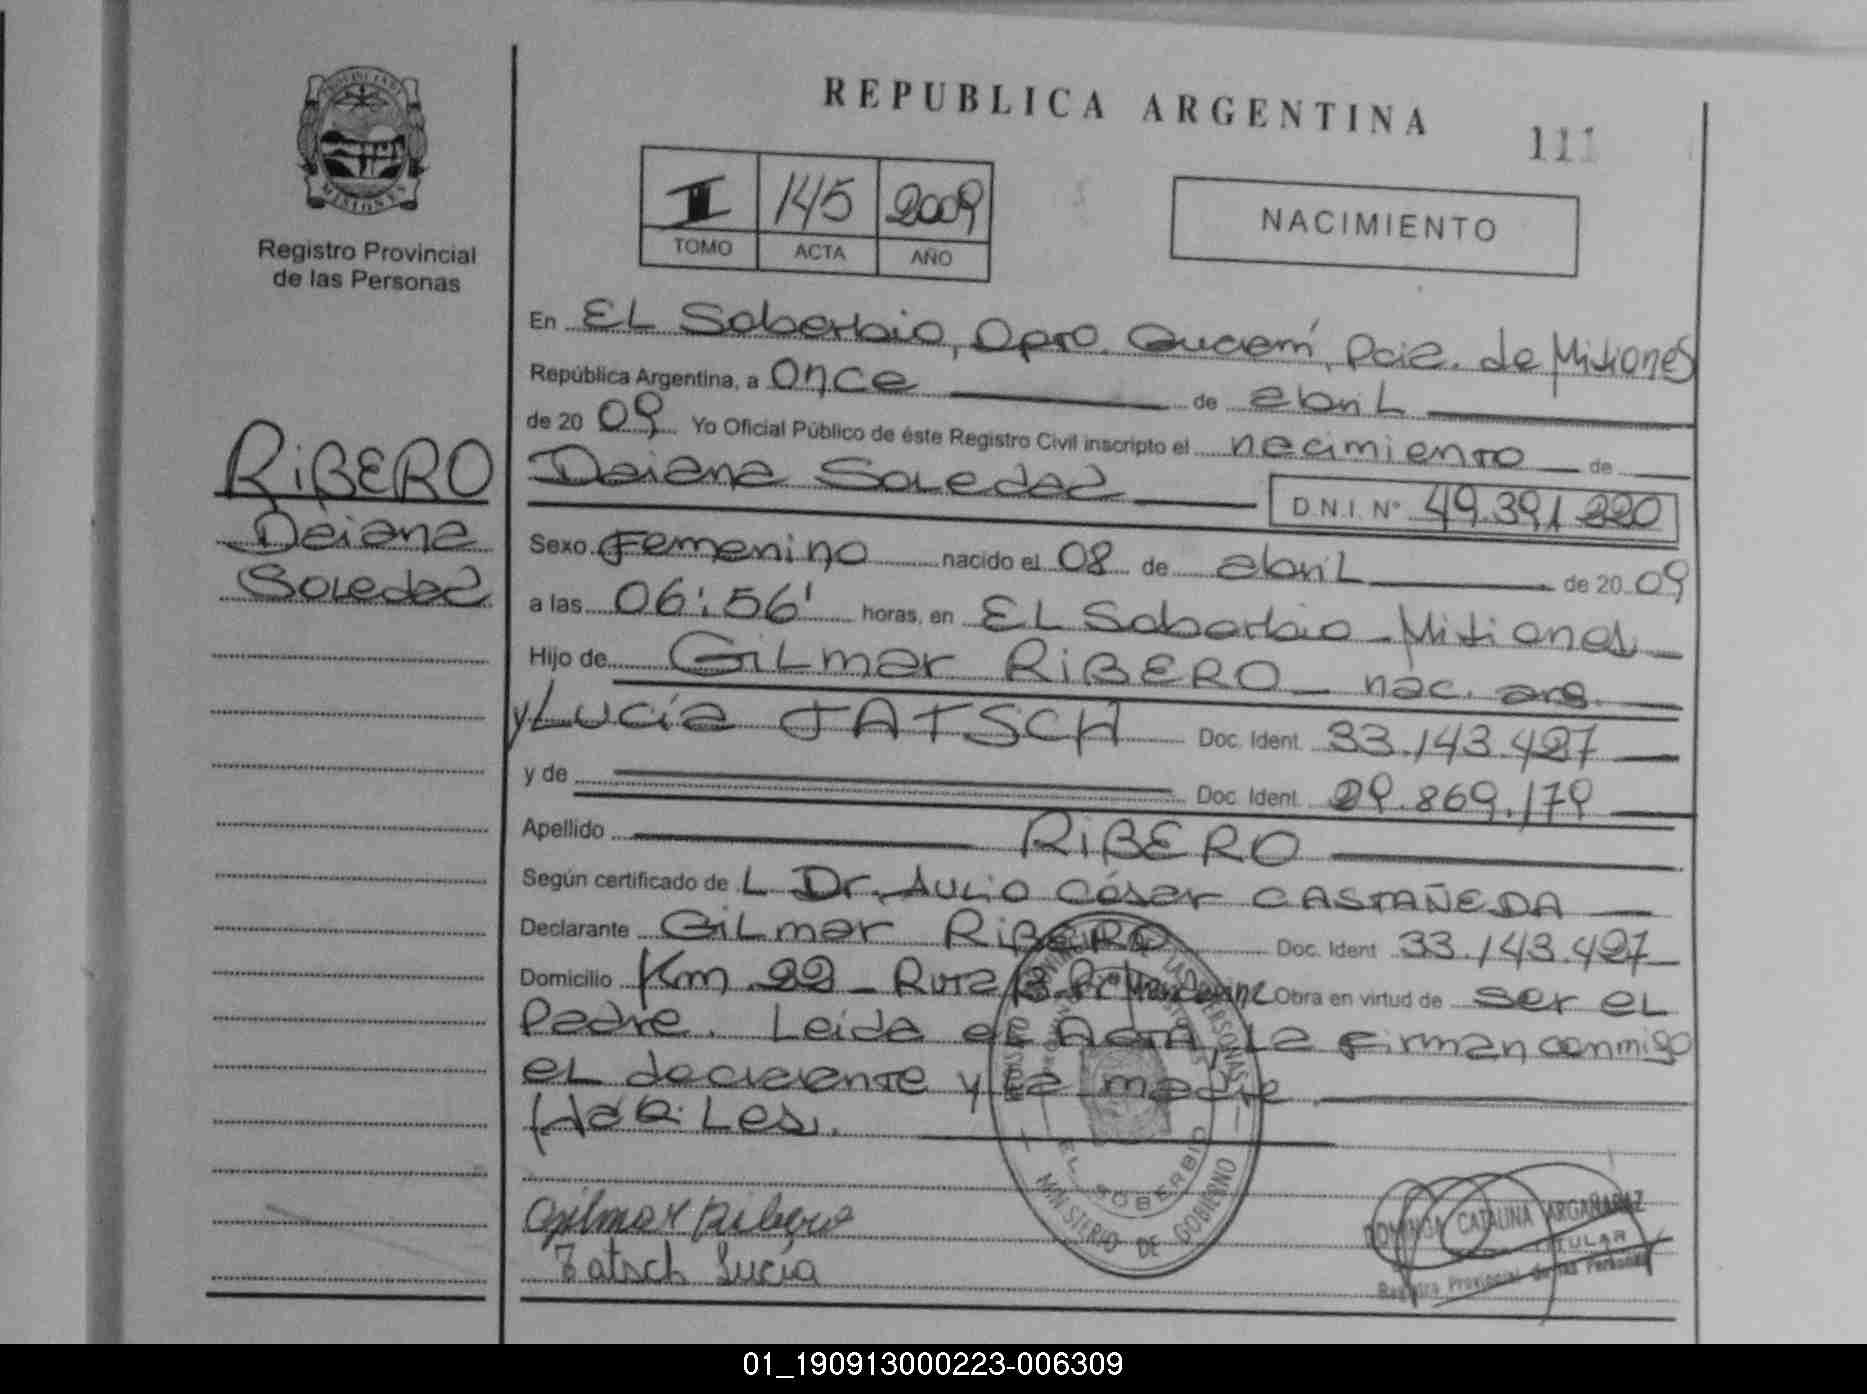 REPUBLICA ARGENTINA
111
MISIONES
Registro Provincial
de las Personas
I 145 2009
TOMO ACTA AÑO
NACIMIENTO
RiBERO
Daiana
Soledad
En EL Soberbio, Dpto. Guaraní, Pcia. de Misiones
República Argentina, a Once de abril
de 20 09 Yo Oficial Público de éste Registro Civil inscripto el nacimiento de
Daiana Soledad D.N.I. N° 49.391.220
Sexo Femenino nacido el 08 de abril de 20 09
a las 06:56' horas, en EL Soberbio - Misiones
Hijo de GiLmar RiBERO nac. arg.
y Lucía TATSCH Doc. Ident. 33.143.427
y de Doc. Ident. 29.869.179
Apellido RiBERO
Según certificado de L Dr. Julio César CASTAÑEDA
Declarante GiLmar RiBERO Doc. Ident 33.143.427
Domicilio Km 22 - Ruta 13 Obra en virtud de ser el
Padre. Leida el Acta, la firman conmigo
el declarante y la madre
Habiles.
EL SOBERBIO
MINISTERIO DE GOBIERNO
Gilmar Ribero
Tatsch Lucia
DOMINGA CATALINA ARGAÑARAZ
TITULAR
Registro Provincial de las Personas
01_190913000223-006309